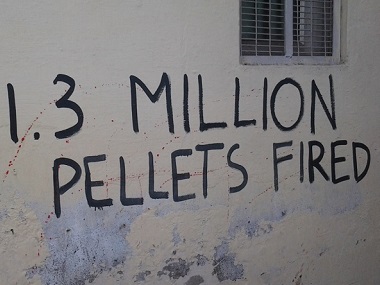 1.3 MILLION
PELLETS FIRED